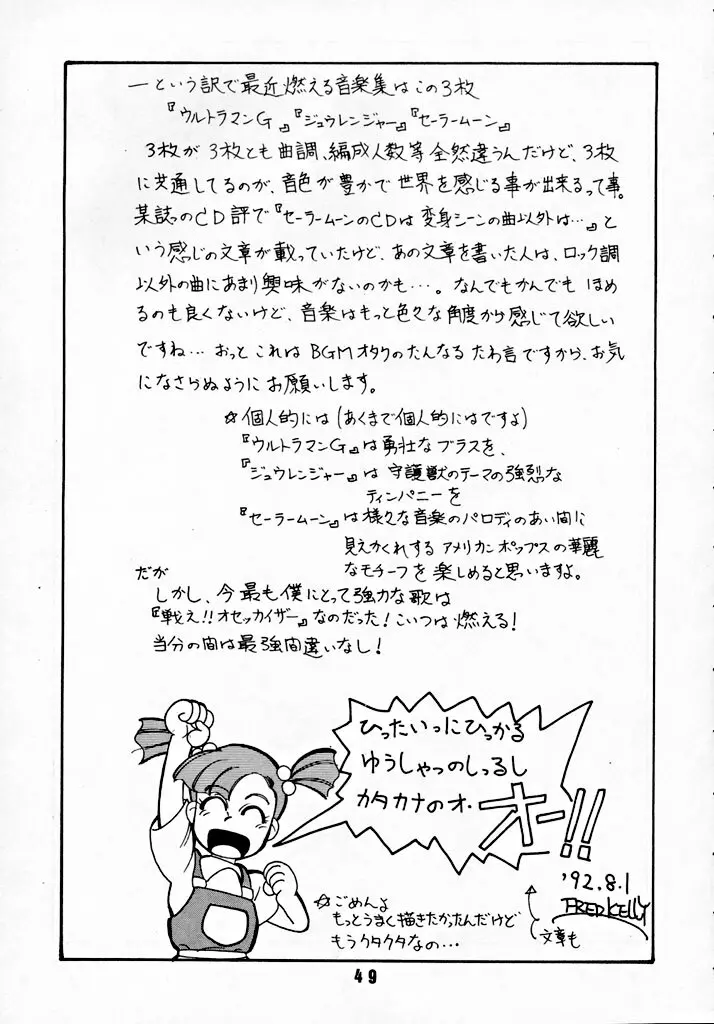 ―という訳で最近燃える音楽集はこの3枚
『ウルトラマンG』『ジュウレンジャー』『セーラームーン』
3枚が3枚とも曲調、編成人数等全然違うんだけど、3枚
に共通してるのが、音色が豊かで世界を感じる事が出来るって事。
某誌のCD評で『セーラームーンのCDは変身シーンの曲以外は…』と
いう感じの文章が載っていたけど、あの文章を書いた人は、ロック調
以外の曲にあまり興味がないのかも…。なんでもかんでもほめ
るのも良くないけど、音楽はもっと色々な角度から感じて欲しい
ですね…おっとこれはBGMオタクのたんなるたわ言ですから、お気
になさらぬようにお願いします。
☆個人的には(あくまで個人的にはですよ)
『ウルトラマンG』は勇壮なブラスを、
『ジュウレンジャー』は守護獣のテーマの強烈な
ティンパニーを
『セーラームーン』は様々な音楽のパロディのあい間に
見えかくれするアメリカンポップスの華麗
なモチーフを楽しめると思いますよ。
だが
しかし、今最も僕にとって強力な歌は
『戦え!!オセッカイザー』なのだった!こいつは燃える!
当分の間は最強間違いなし!
ひったいっにひっかる
ゆうしゃっのしっるし
カタカナのオ・
オー!!
'92.8.1
FRED KELLY
☆ごめんよ
もっとうまく描きたかったんだけど
もうクタクタなの…
文章も
49